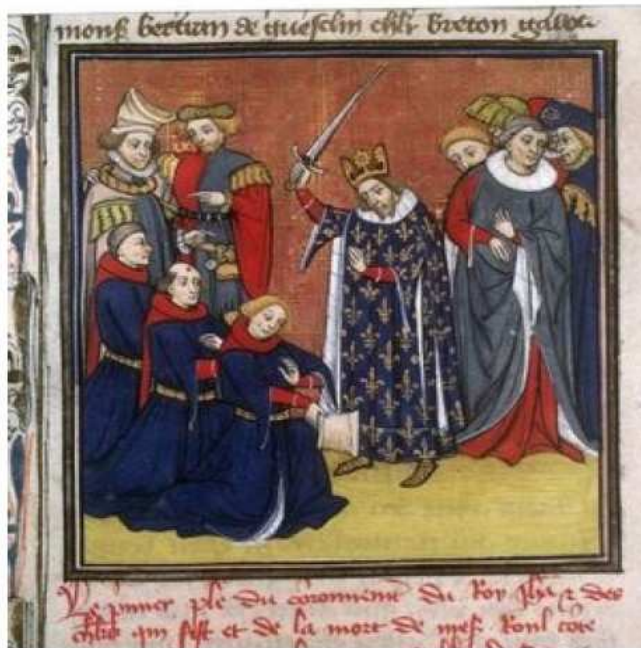 mons bertran de guesclin chlr breton
Le pmier ple du coronnement du Roy Jhā ⁊ des
chlrs qui fist et de la mort de mess Roul cōte